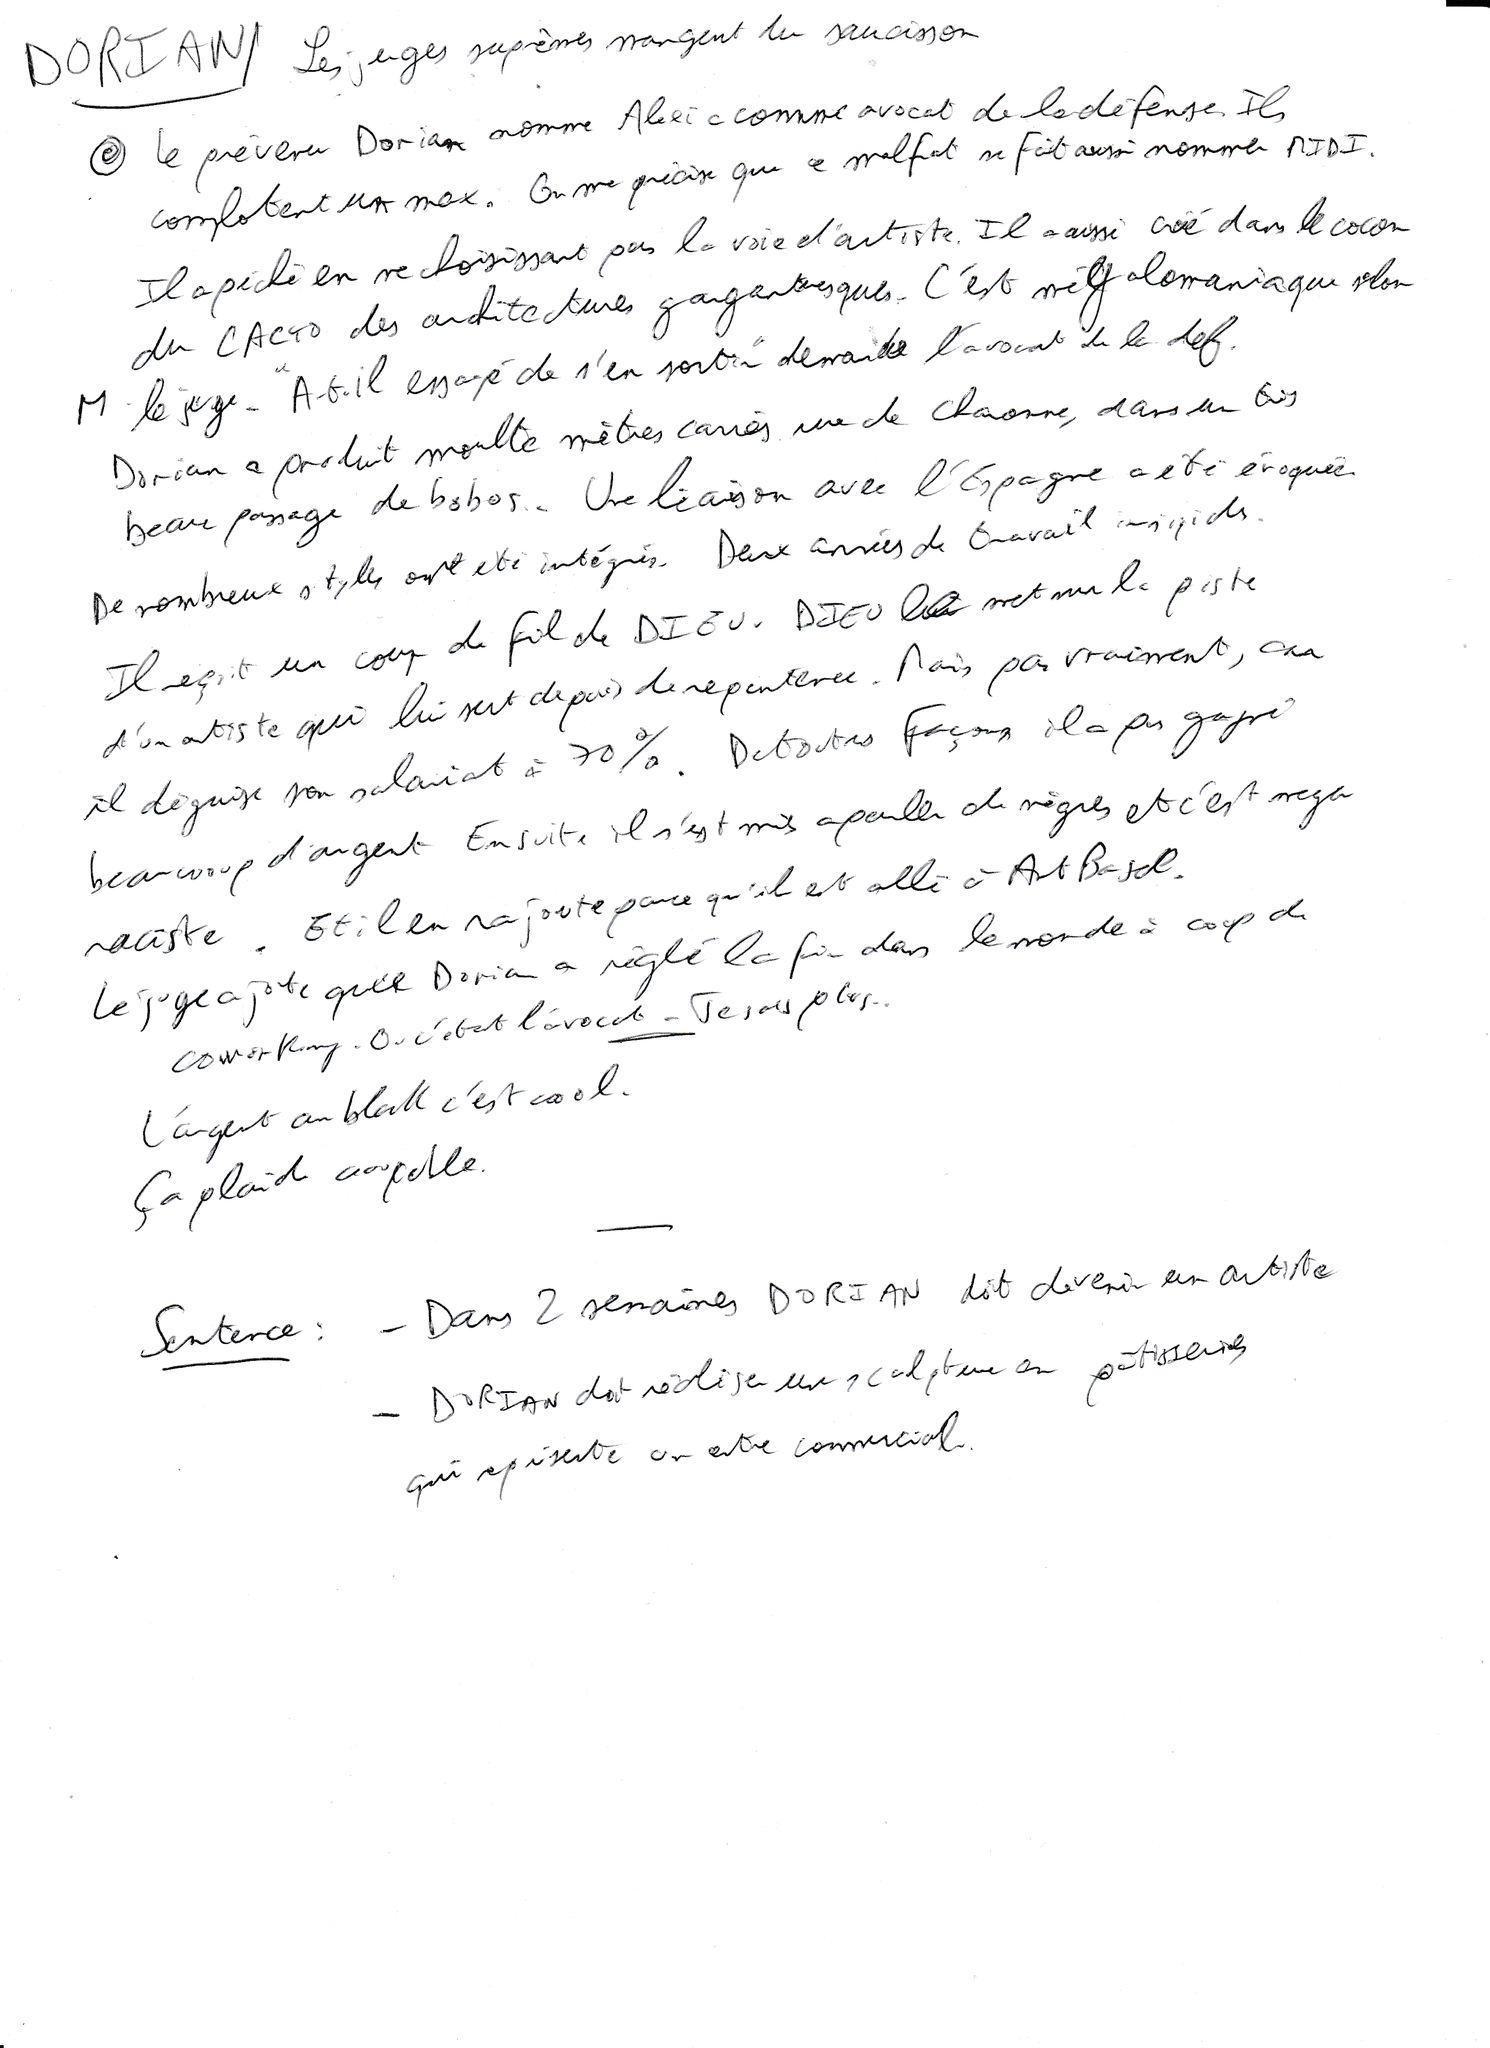 DORIAN Les juges suprêmes mangent du saucisson
le prévenu Dorian nomme comme avocat de la défense. Ils
complotent un max. On me précise que ce malfrat se fait aussi nommer MIDI.
Il a péché en ne choisissant pas la voie d'artiste. Il a aussi créé dans le cocon
du des architectures gargantuesques. C'est mégalomaniaque selon
M. le juge - "A-t-il essayé de s'en sortir" demande l'avocat de la def.
Dorian a produit moulte mètres carrés rue de Charonne, dans un très
beau passage de bobos.. Une liaison avec l'Espagne a été évoquée
De nombreux styles ont été intégrés. Deux années de travail insipide.
Il reçoit un coup de fil de DIEU. DIEU le met sur la piste
d'un artiste qui lui sert depuis de repentance. Mais pas vraiment, car
il déguise son salariat à 70%. De toutes façons il a pas gagné
beaucoup d'argent Ensuite il s'est mis a parler de nègres et c'est mega
raciste. Et il en rajoute parce qu'il est allé à Art Basel.
Le juge ajoute que Dorian a réglé la faim dans le monde à coup de
coworking. Ou c'était l'avocat - Je sais plus..
L'argent au black c'est cool.
Ça plaide coupable.
Sentence : - Dans 2 semaines DORIAN doit devenir un artiste
- DORIAN doit réaliser une sculpture en pâtisseries
qui représente un centre commercial.